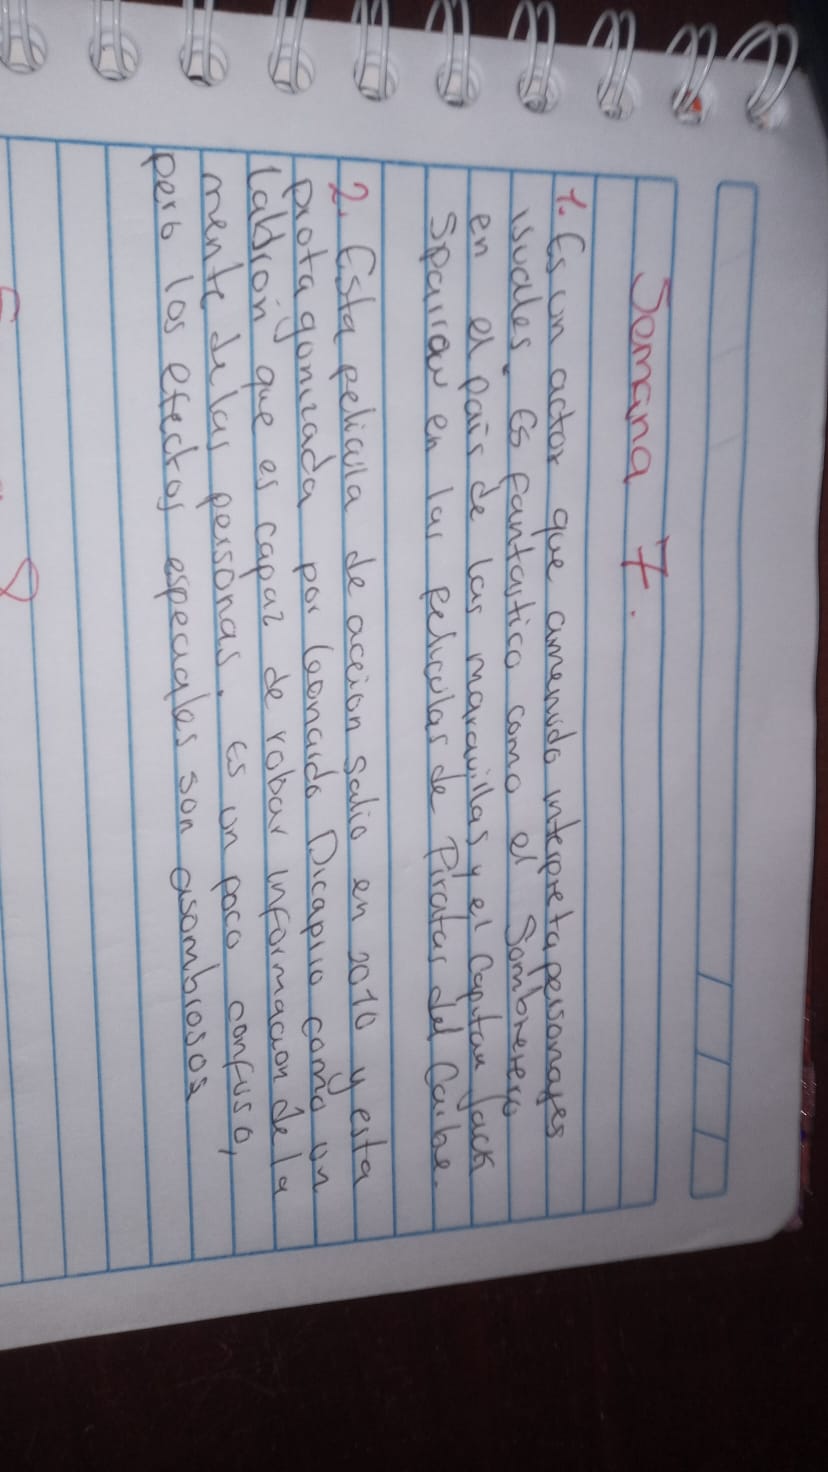 Semana 7.
1. Es un actor que amenudo interpreta personajes
isuales. Es fantastico como el Sombrerero
en el país de las maravillas y el Capitan Jack
Sparrow en las peliculas de Piratas del Caribe.
2. Esta pelicula de accion salio en 2010 y esta
protagonizada por Leonardo Dicaprio como un
ladrón que es capaz de robar informacion de la
mente de las personas. Es un poco confuso,
pero los efectos especiales son asombrosos